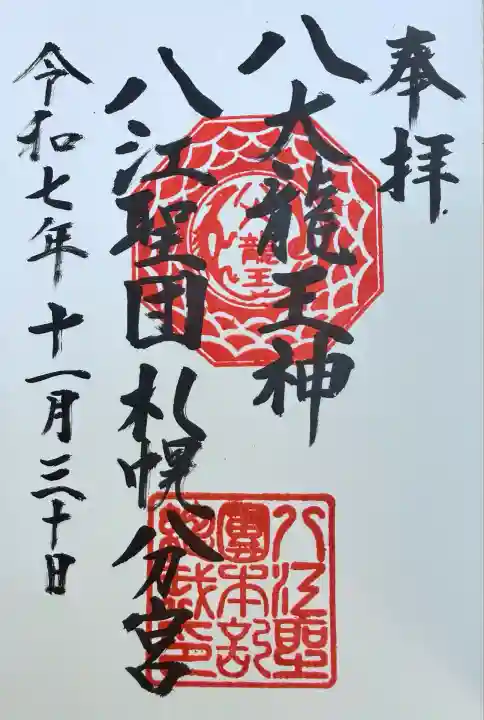 奉拝
八大龍王神
八江聖団札幌分宮
令和七年十一月三十日
龍王
八江聖
團本部